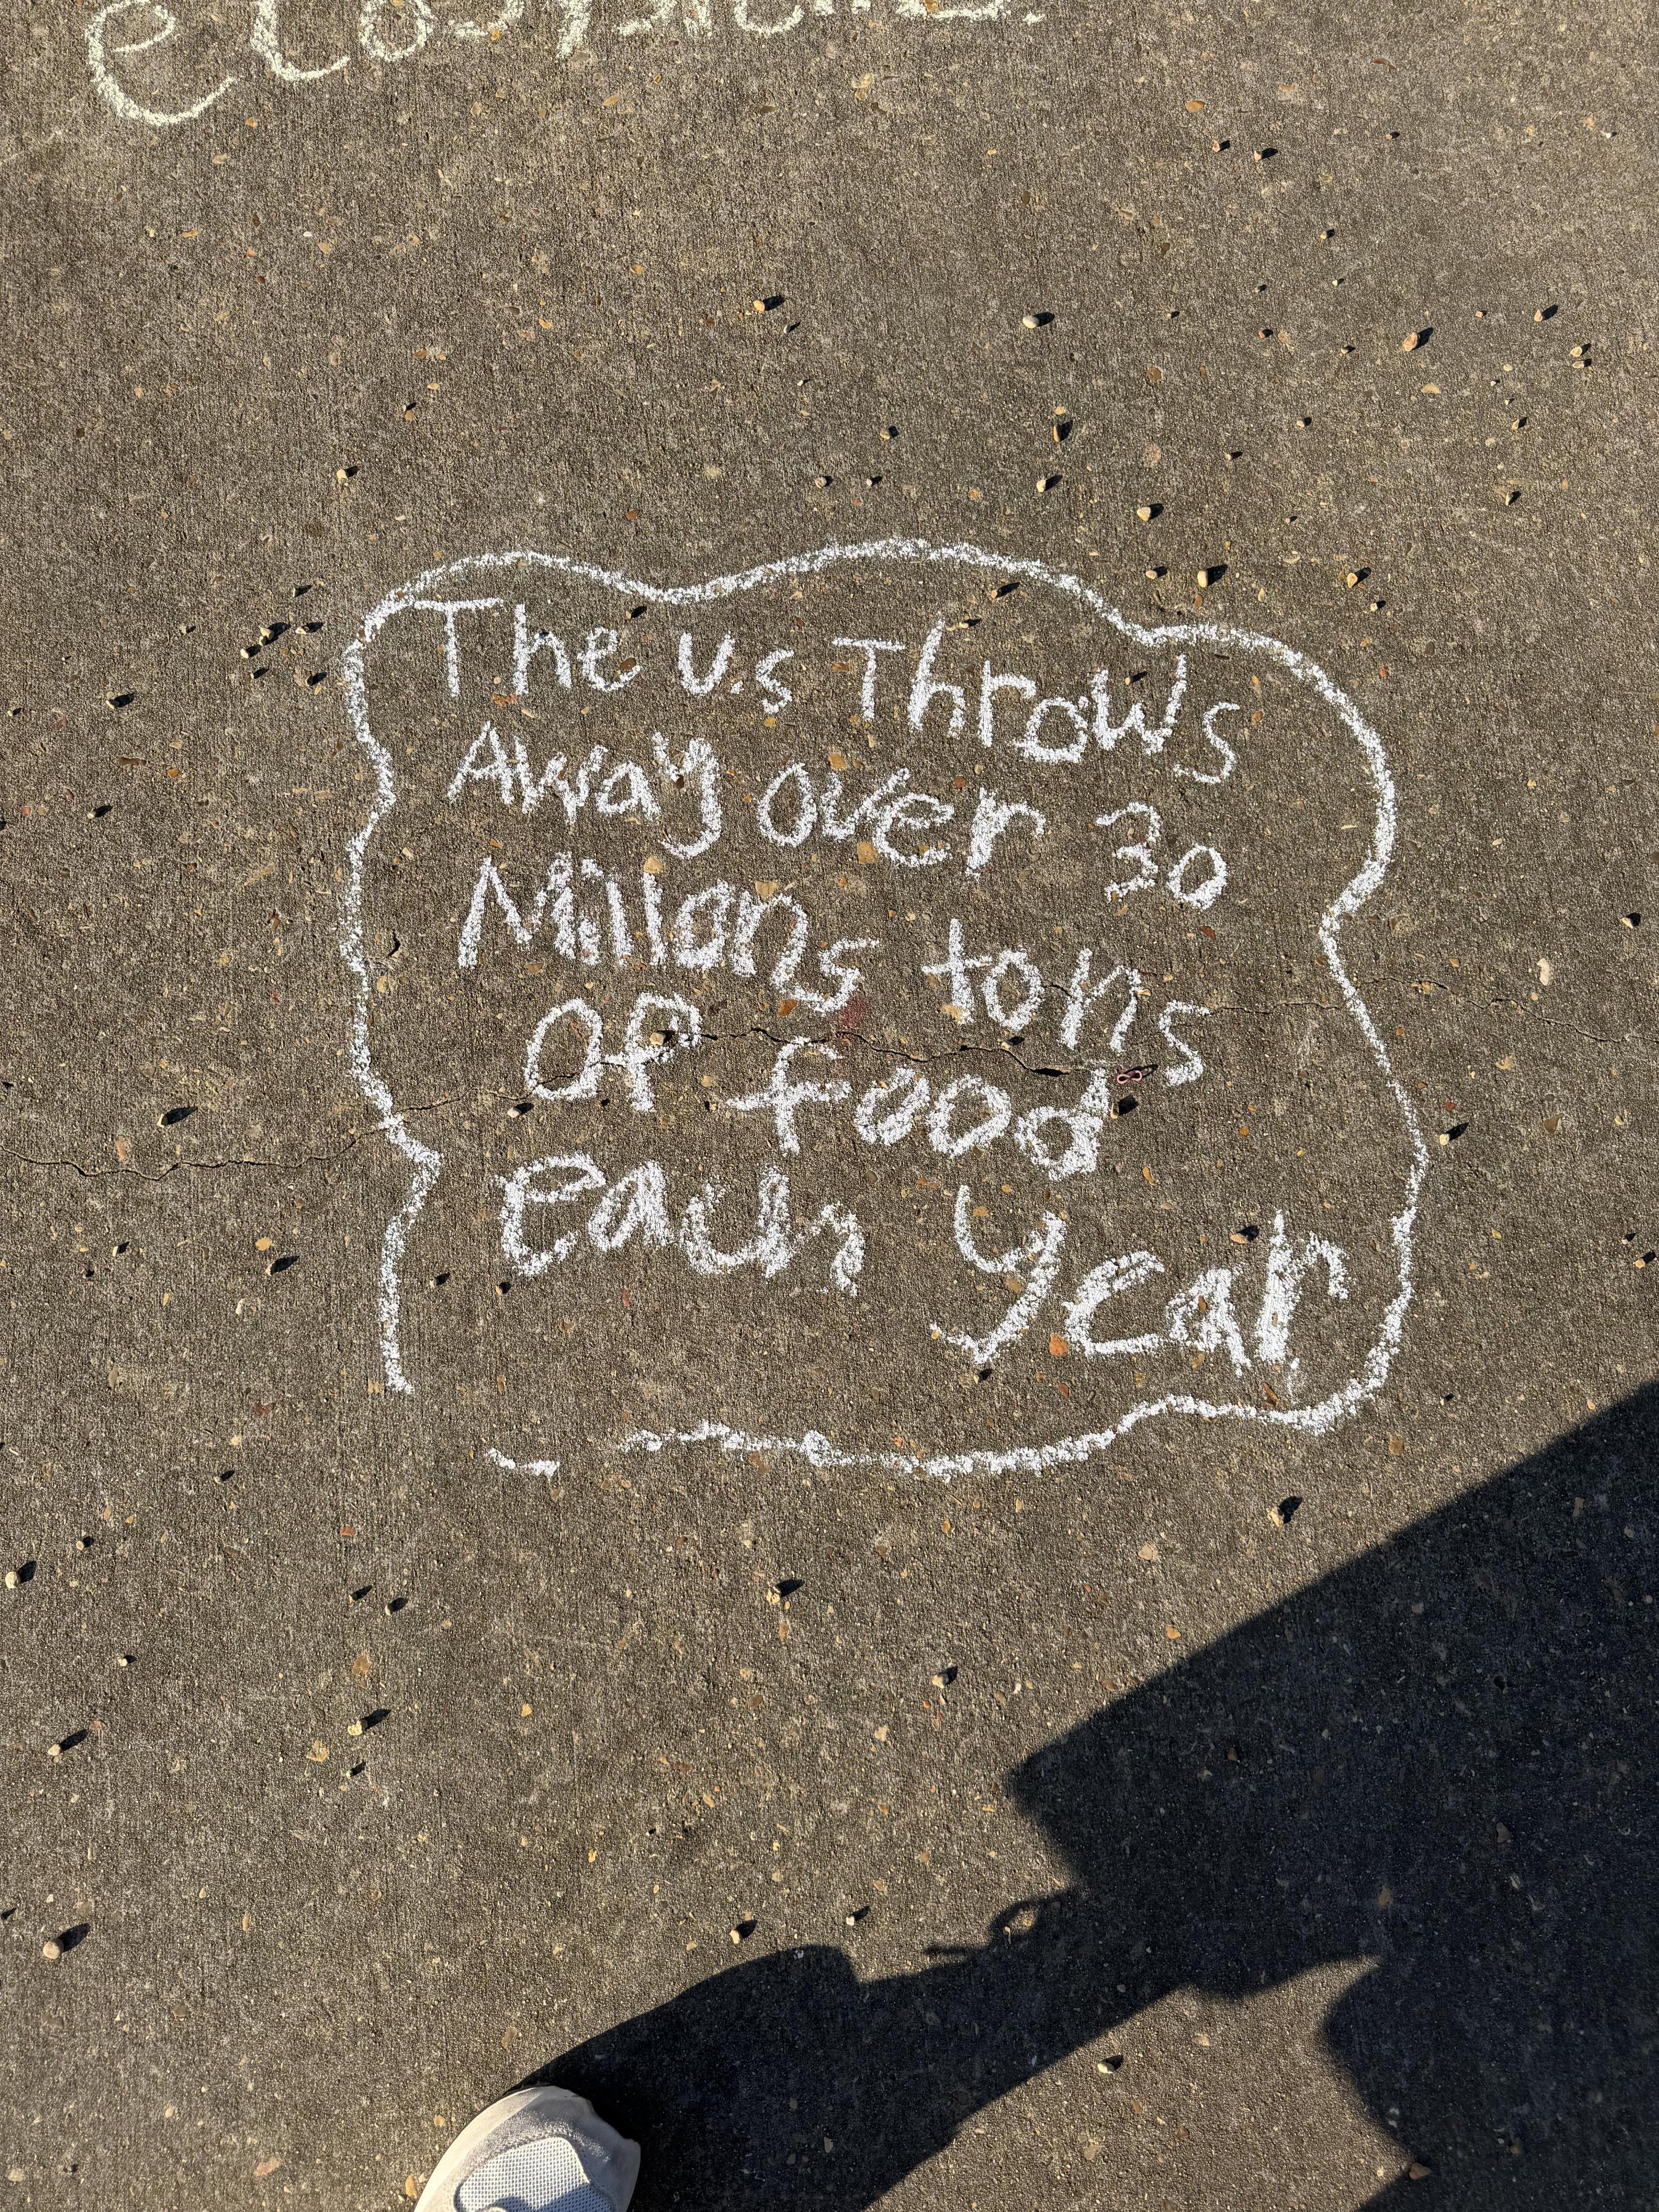 ecosystem.
The U.S Throws
Away over 30
Millons tons
OF food
each year